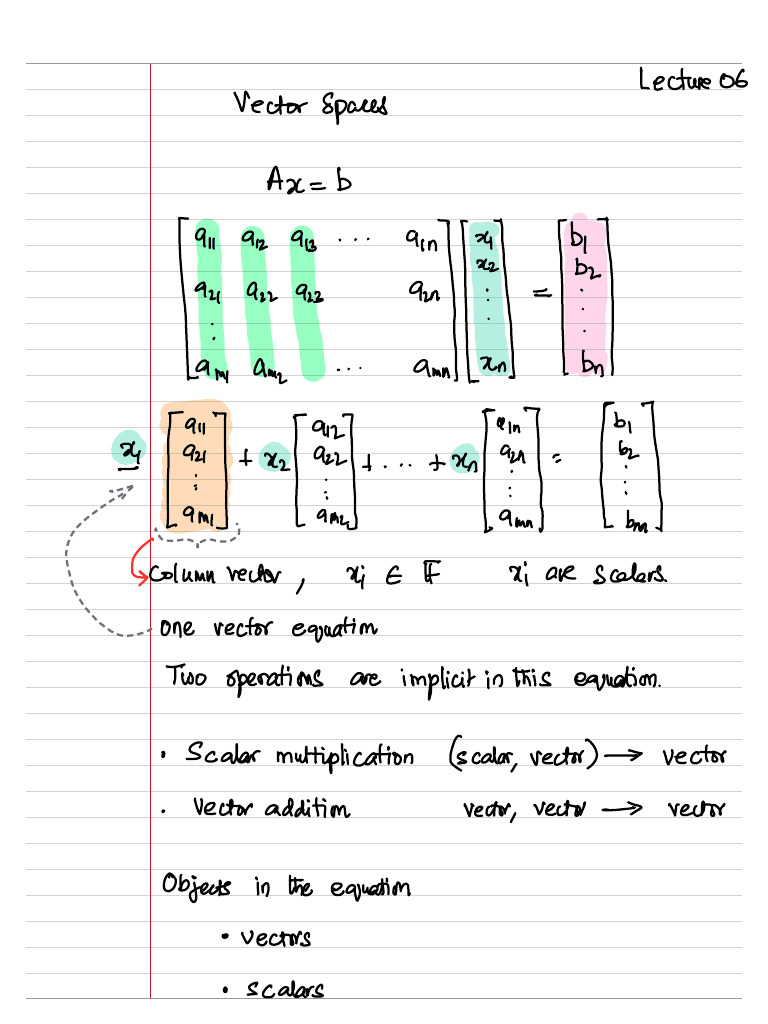 Lecture 06
Vector Spaces
Ax = b
a11 a12 a13 ... a1n x1 b1
x2 b2
a21 a22 a23 a2n : = :
: . .
am1 am2 ... amn xn bn
a11 a12 a1n b1
x1 a21 + x2 a22 + ... + xn a2n = b2
: : : :
am1 am2 amn bm
Column vector, xi ∈ 𝔽 xi are scalars.
one vector equation
Two operations are implicit in this equation.
• Scalar multiplication (scalar, vector) → vector
• Vector addition vector, vector → vector
Objects in the equation
• vectors
• scalars